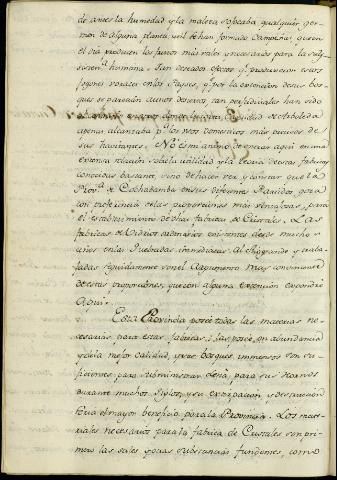 de antes la humedad y la maleza sofocaba qualquier ger-
men de alguna planta util se han formado Campiñas, que en
el dia producen los frutos mas utiles y necesarios para la sub-
sisten.ª humana. Tan deseados efectos q.e produxeron estos
fogones voraces en los Payses, q.e por la extencion de sus bos-
ques se parecian a unos desiertos, tan perjudiciales han sido
apenas alcanzaba p.ª los usos domesticos mas precisos de
sus havitantes. No es mi animo de entrar aqui en una
extensa relacion sobre la utilidad y la teoria de estas fabricas
conocidas bastante, sino de hacer ver y constar que la
Prov.ª de Cochabamba en sus diferentes Partidos goza
con preferencia de las proporciones mas ventajosas, para
el establecimiento de dhas fabricas de Cristales. Las
fabricas de Vidrio ordinarios existentes desde mucho-
s años en las Quebradas inmediatas al Riogrande y trata-
das seguidamente son el Argumento mas convincente
de estas proporciones, que con alguna extencion expondre
Aqui.
Esta Provincia posee todas las materias ne-
cesarias para estas fabricas, y las posee en abundancia
y de la mejor calidad, y sus bosques immensos son su-
ficientes para subministrar Leña, para sus Hornos
durante muchos Siglos, y su extirpacion y destruccion
seria el mayor beneficio para la Provincia. Los mate-
riales necesarios para la fabrica de Cristales son pri-
mero las sales y otras substancias fundentes, como